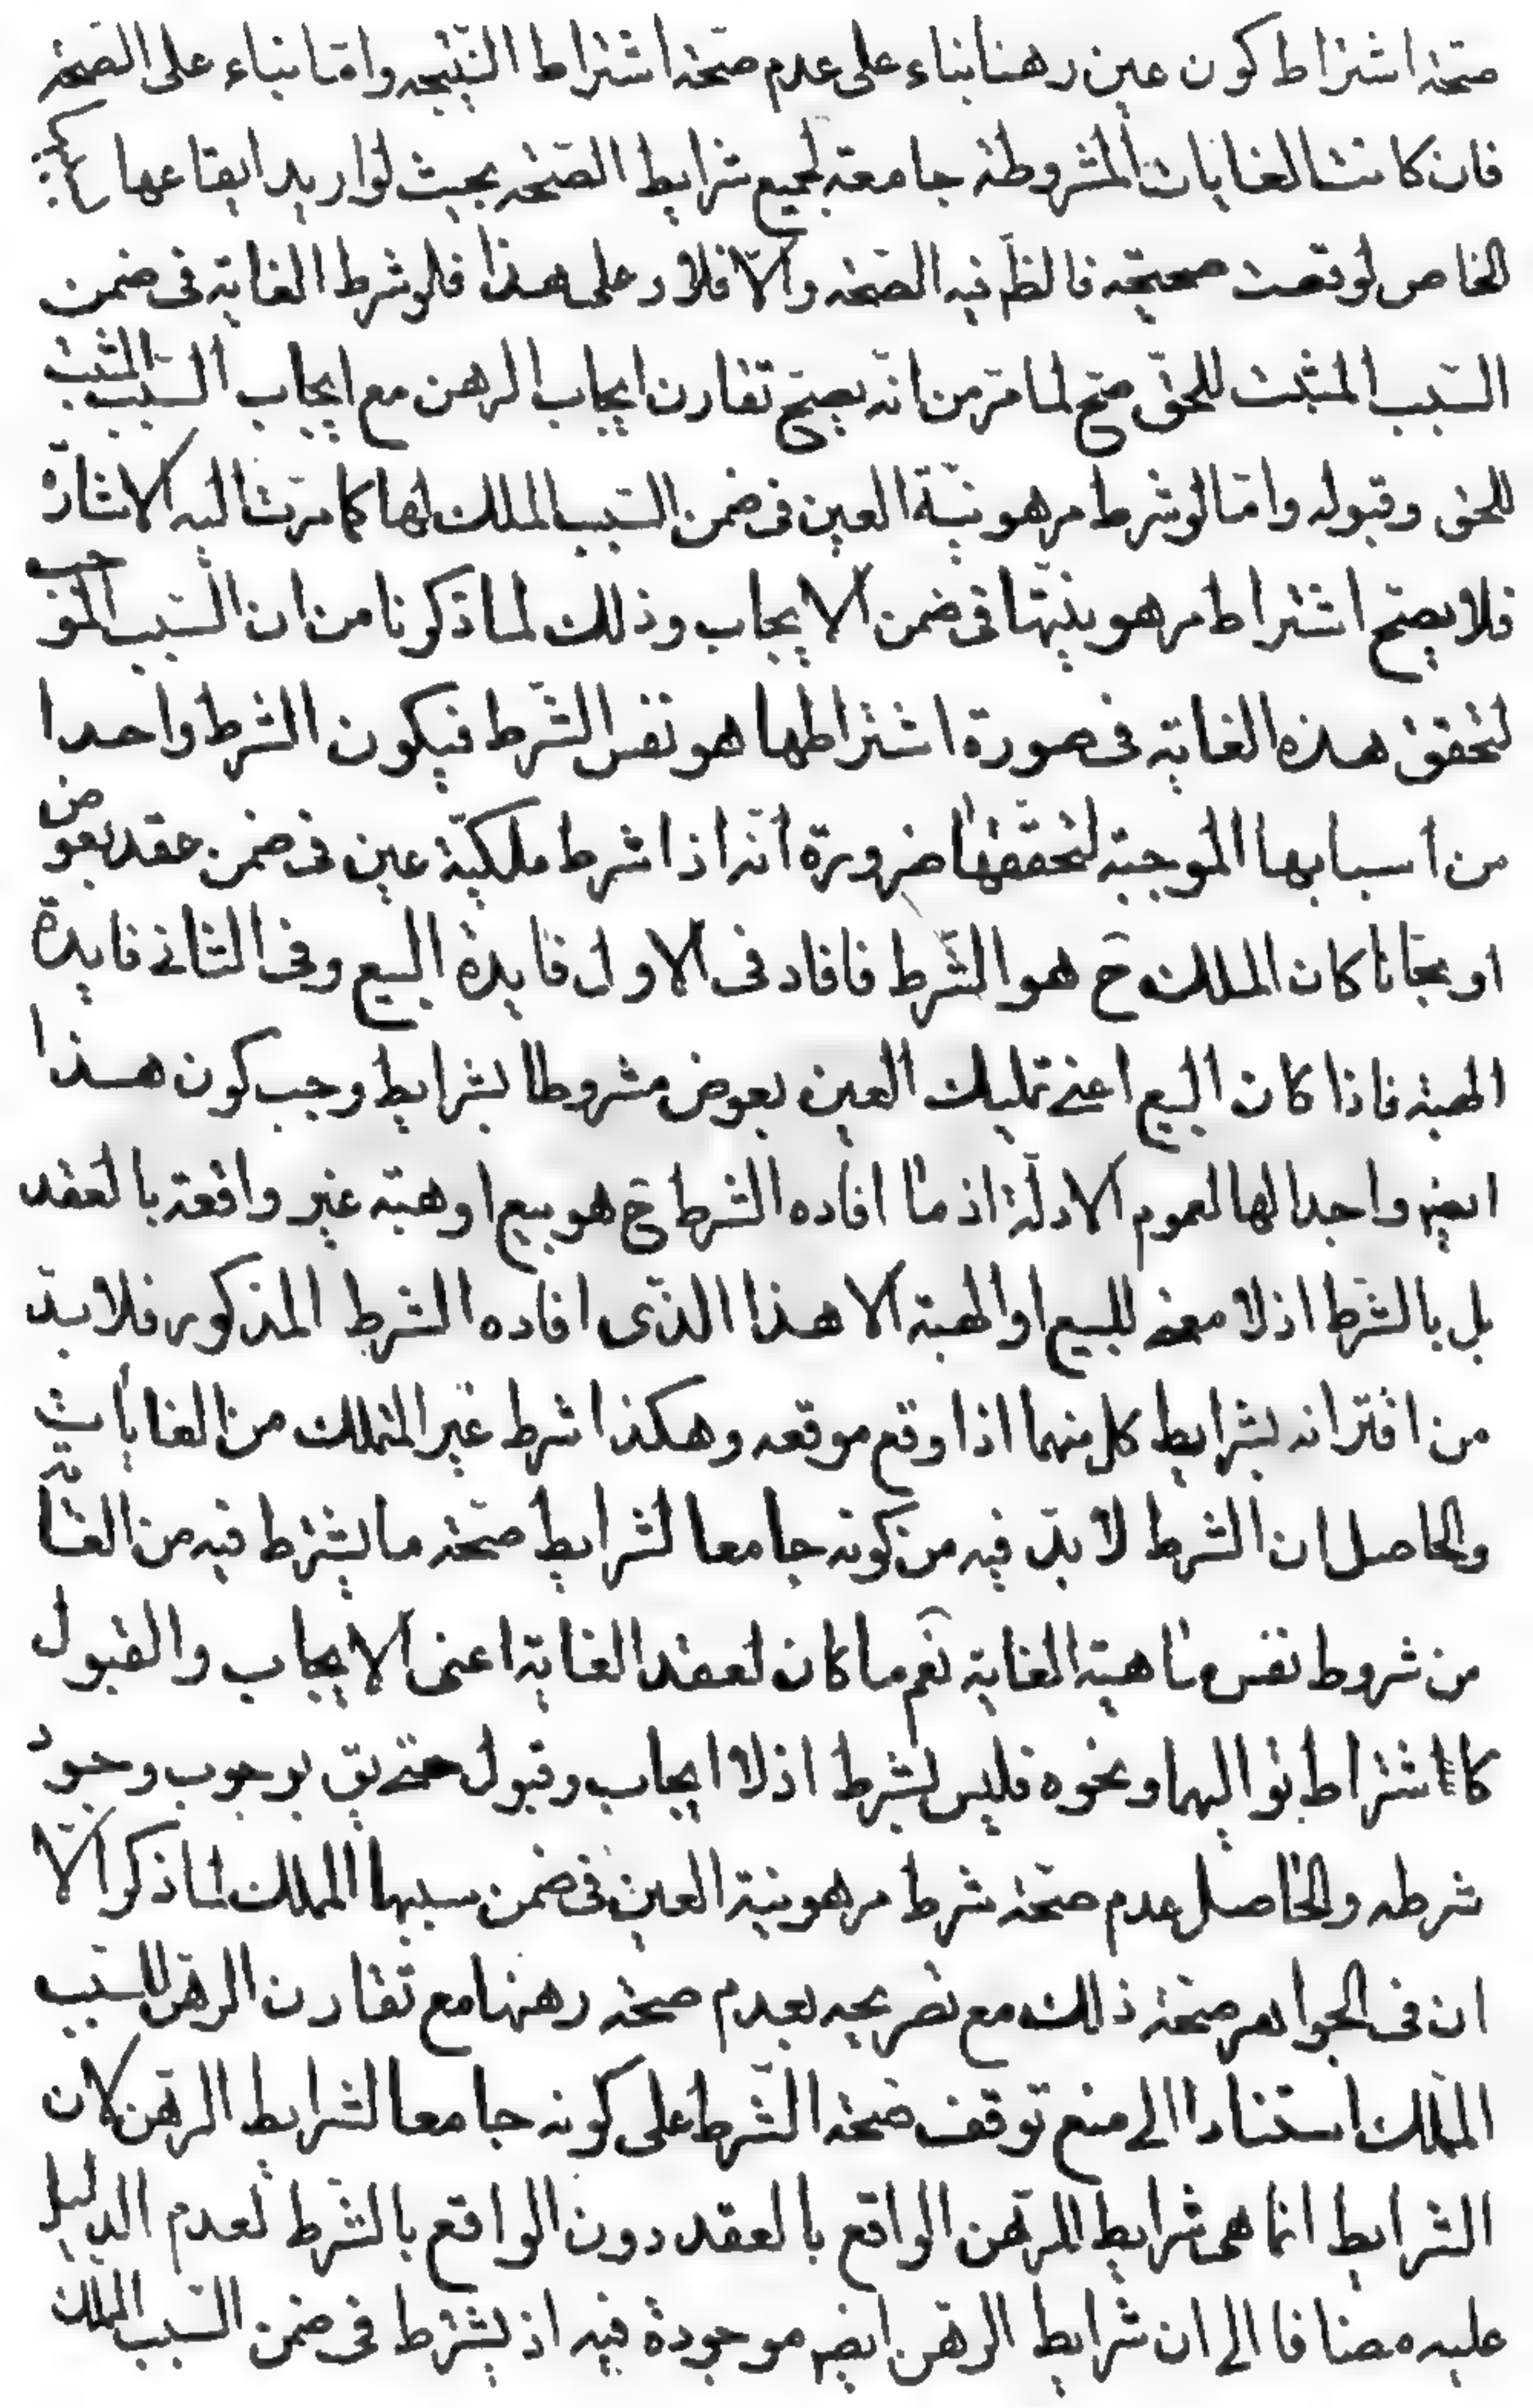 صحّة اشتراط كون عين رهنا بناء على عدم صحّة اشتراط النّتيجه وامّا بناء على الصّحّة
فان كانت الغايات المشروطة جامعة لجميع شرايط الصّحّه بحيث لو اريد ايقاعها بسببها
الخاص لوقعت صحيحة فالظّ فيه الصّحّه والّا فلا وعلى هذا فلو شرط الغاية فى ضمن
السّبب المثبت للحقّ صحّ لما مرّ من انّه يصحّ تقارن ايجاب الرهن مع ايجاب السّبب المثبت
للحق وقبوله وامّا لو شرط مرهونيّة العين فى ضمن السّبب المملك لها كما مرّت اليه الاشارة
فلا يصحّ اشتراط مرهونيّتها فى ضمن الايجاب وذلك لما ذكرنا من ان السّبب الموجب
لتحقق هذه الغاية فى صورة اشتراطها هو نفس الشّرط فيكون الشرط واحدا
من اسبابها الموجبة لتحقّقها ضرورة انّه اذا شرط ملكيّة عين فى ضمن عقد بعوض
او مجّانا كان المملك ح هو الشّرط فافاد فى الاول فايدة البيع وفى الثانى فايدة
الهبة فاذا كان البيع اعنى تمليك العين بعوض مشروطا بشرايط وجب كون هذا
ايضر واجدا لها لعموم الادلّة اذ ما افاده الشرط ح هو بيع او هبة غير واقعة بالعقد
بل بالشّرط اذ لا معنى للبيع او الهبة الا هذا الذّى افاده الشرط المذكور فلا بدّ
من اقترانه بشرايط كل منهما اذا وقع موقعه وهكذا شرط غير المملك من الغايات
والحاصل ان الشرط لا بدّ فيه من كونه جامعا لشرايط صحّة ما يشترط فيه من الغاية
من شروط نفس ماهية الغاية نعم ما كان لعقد الغاية اعنى الايجاب والقبول
كاشتراط تواليهما ونحوه فليس بشرط اذ لا ايجاب وقبول حتى يق بوجوب وجود
شرطه والحاصل عدم صحّة شرط مرهونية العين فى ضمن سببها المملك لما ذكر الّا
ان فى الجواهر صحّة ذلك مع تصريحه بعدم صحة رهنها مع تقارن الرهن للسّبب
المملك استنادا الى منع توقف صحّة الشّرط على كونه جامعا لشرايط الرهن لان
الشرايط انما هى شرايط الرّهن الواقع بالعقد دون الواقع بالشّرط لعدم الدليل
عليه مضافا الى ان شرايط الرهن ايضر موجودة فيه اذ يشترط فى ضمن السّبب المملك